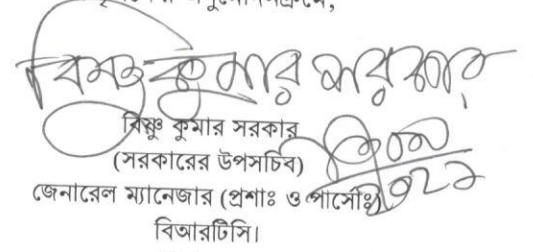 বিষ্ণু কুমার সরকার
বিষ্ণু কুমার সরকার
(সরকারের উপসচিব)
জেনারেল ম্যানেজার (প্রশাঃ ও পার্সোঃ)
বিআরটিসি।